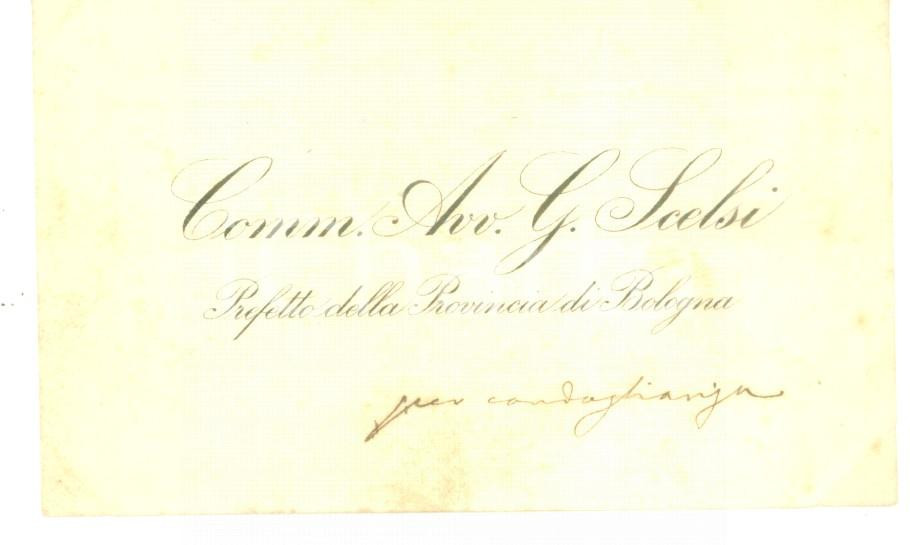 Comm. Avv. G. Scelsi
Prefetto della Provincia di Bologna
per condoglianza